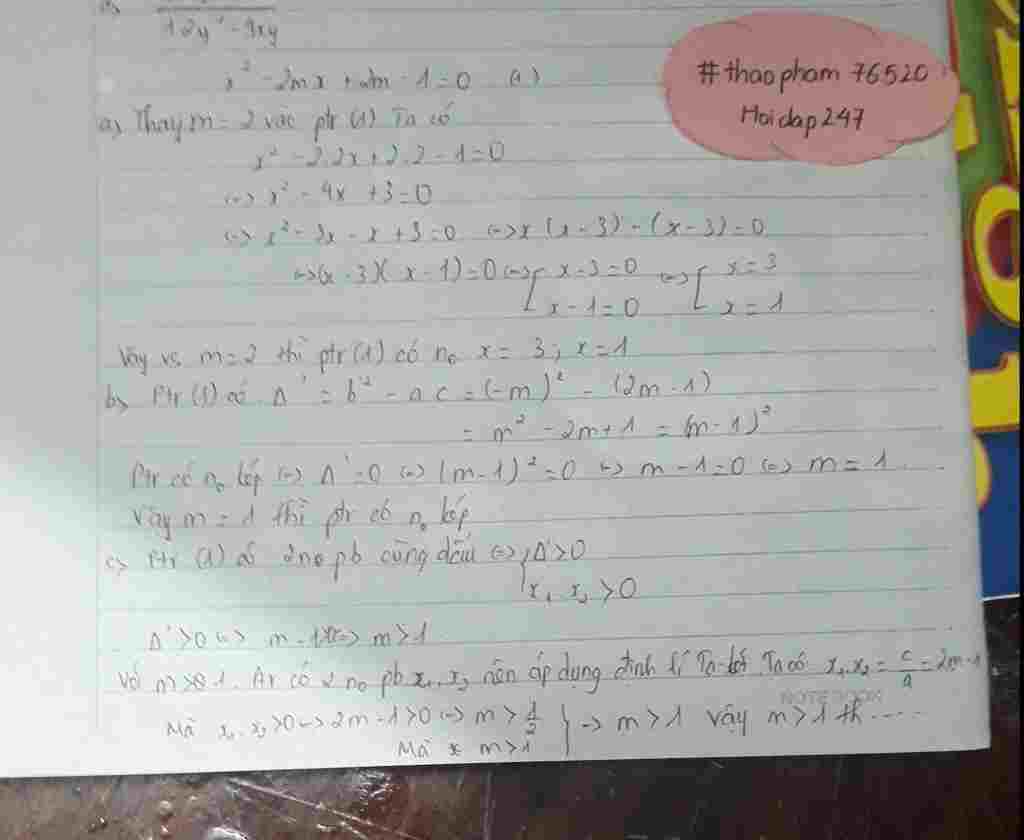 12y² - 9xy
x² - 2mx + 2m - 1 = 0 (1)
#thaopham 76520
Hoidap247
a, Thay m = 2 vào ptr (1) Ta có
x² - 2.2x + 2.2 - 1 = 0
<=> x² - 4x + 3 = 0
<=> x² - 3x - x + 3 = 0 <=> x(x - 3) - (x - 3) = 0
<=> (x - 3)(x - 1) = 0 <=> [ x - 3 = 0 <=> [ x = 3
x - 1 = 0 x = 1
Vậy vs m = 2 thì ptr (1) có no x = 3; x = 1
b, Ptr (1) có Δ' = b'² - ac = (-m)² - (2m - 1)
= m² - 2m + 1 = (m - 1)²
Ptr có no kép <=> Δ' = 0 <=> (m - 1)² = 0 <=> m - 1 = 0 <=> m = 1.
Vậy m = 1 thì ptr có no kép
c, Ptr (1) có 2 no pb cùng dấu <=> { Δ' > 0
x₁ x₂ > 0
Δ' > 0 <=> m - 1 <=> m > 1
Với m > 1. có 2 no pb x₁, x₂ nên áp dụng định lí Ta-lét. Ta có x₁.x₂ = c/a = 2m - 1
NOTEBOOK
Mà x₁.x₂ > 0 -> 2m - 1 > 0 <=> m > 1/2 } -> m > 1 Vậy m > 1 th.....
Mà m > 1